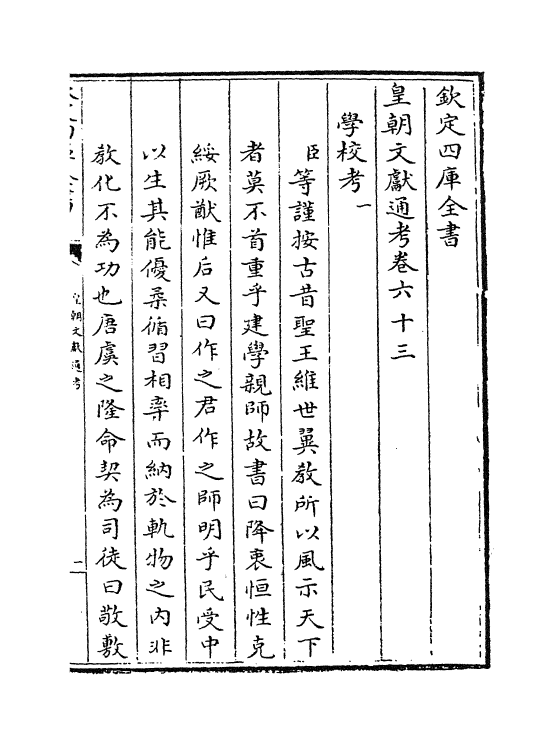 欽定四庫全書
皇朝文獻通考卷六十三
學校考一
臣等謹按古昔聖王維世翼教所以風示天下
者莫不首重乎建學親師故書曰降衷恒性克
綏厥猷惟后又曰作之君作之師明乎民受中
以生其能優柔循習相率而納於軌物之内非
教化不為功也唐虞之隆命契為司徒曰敬敷
皇朝文獻通考